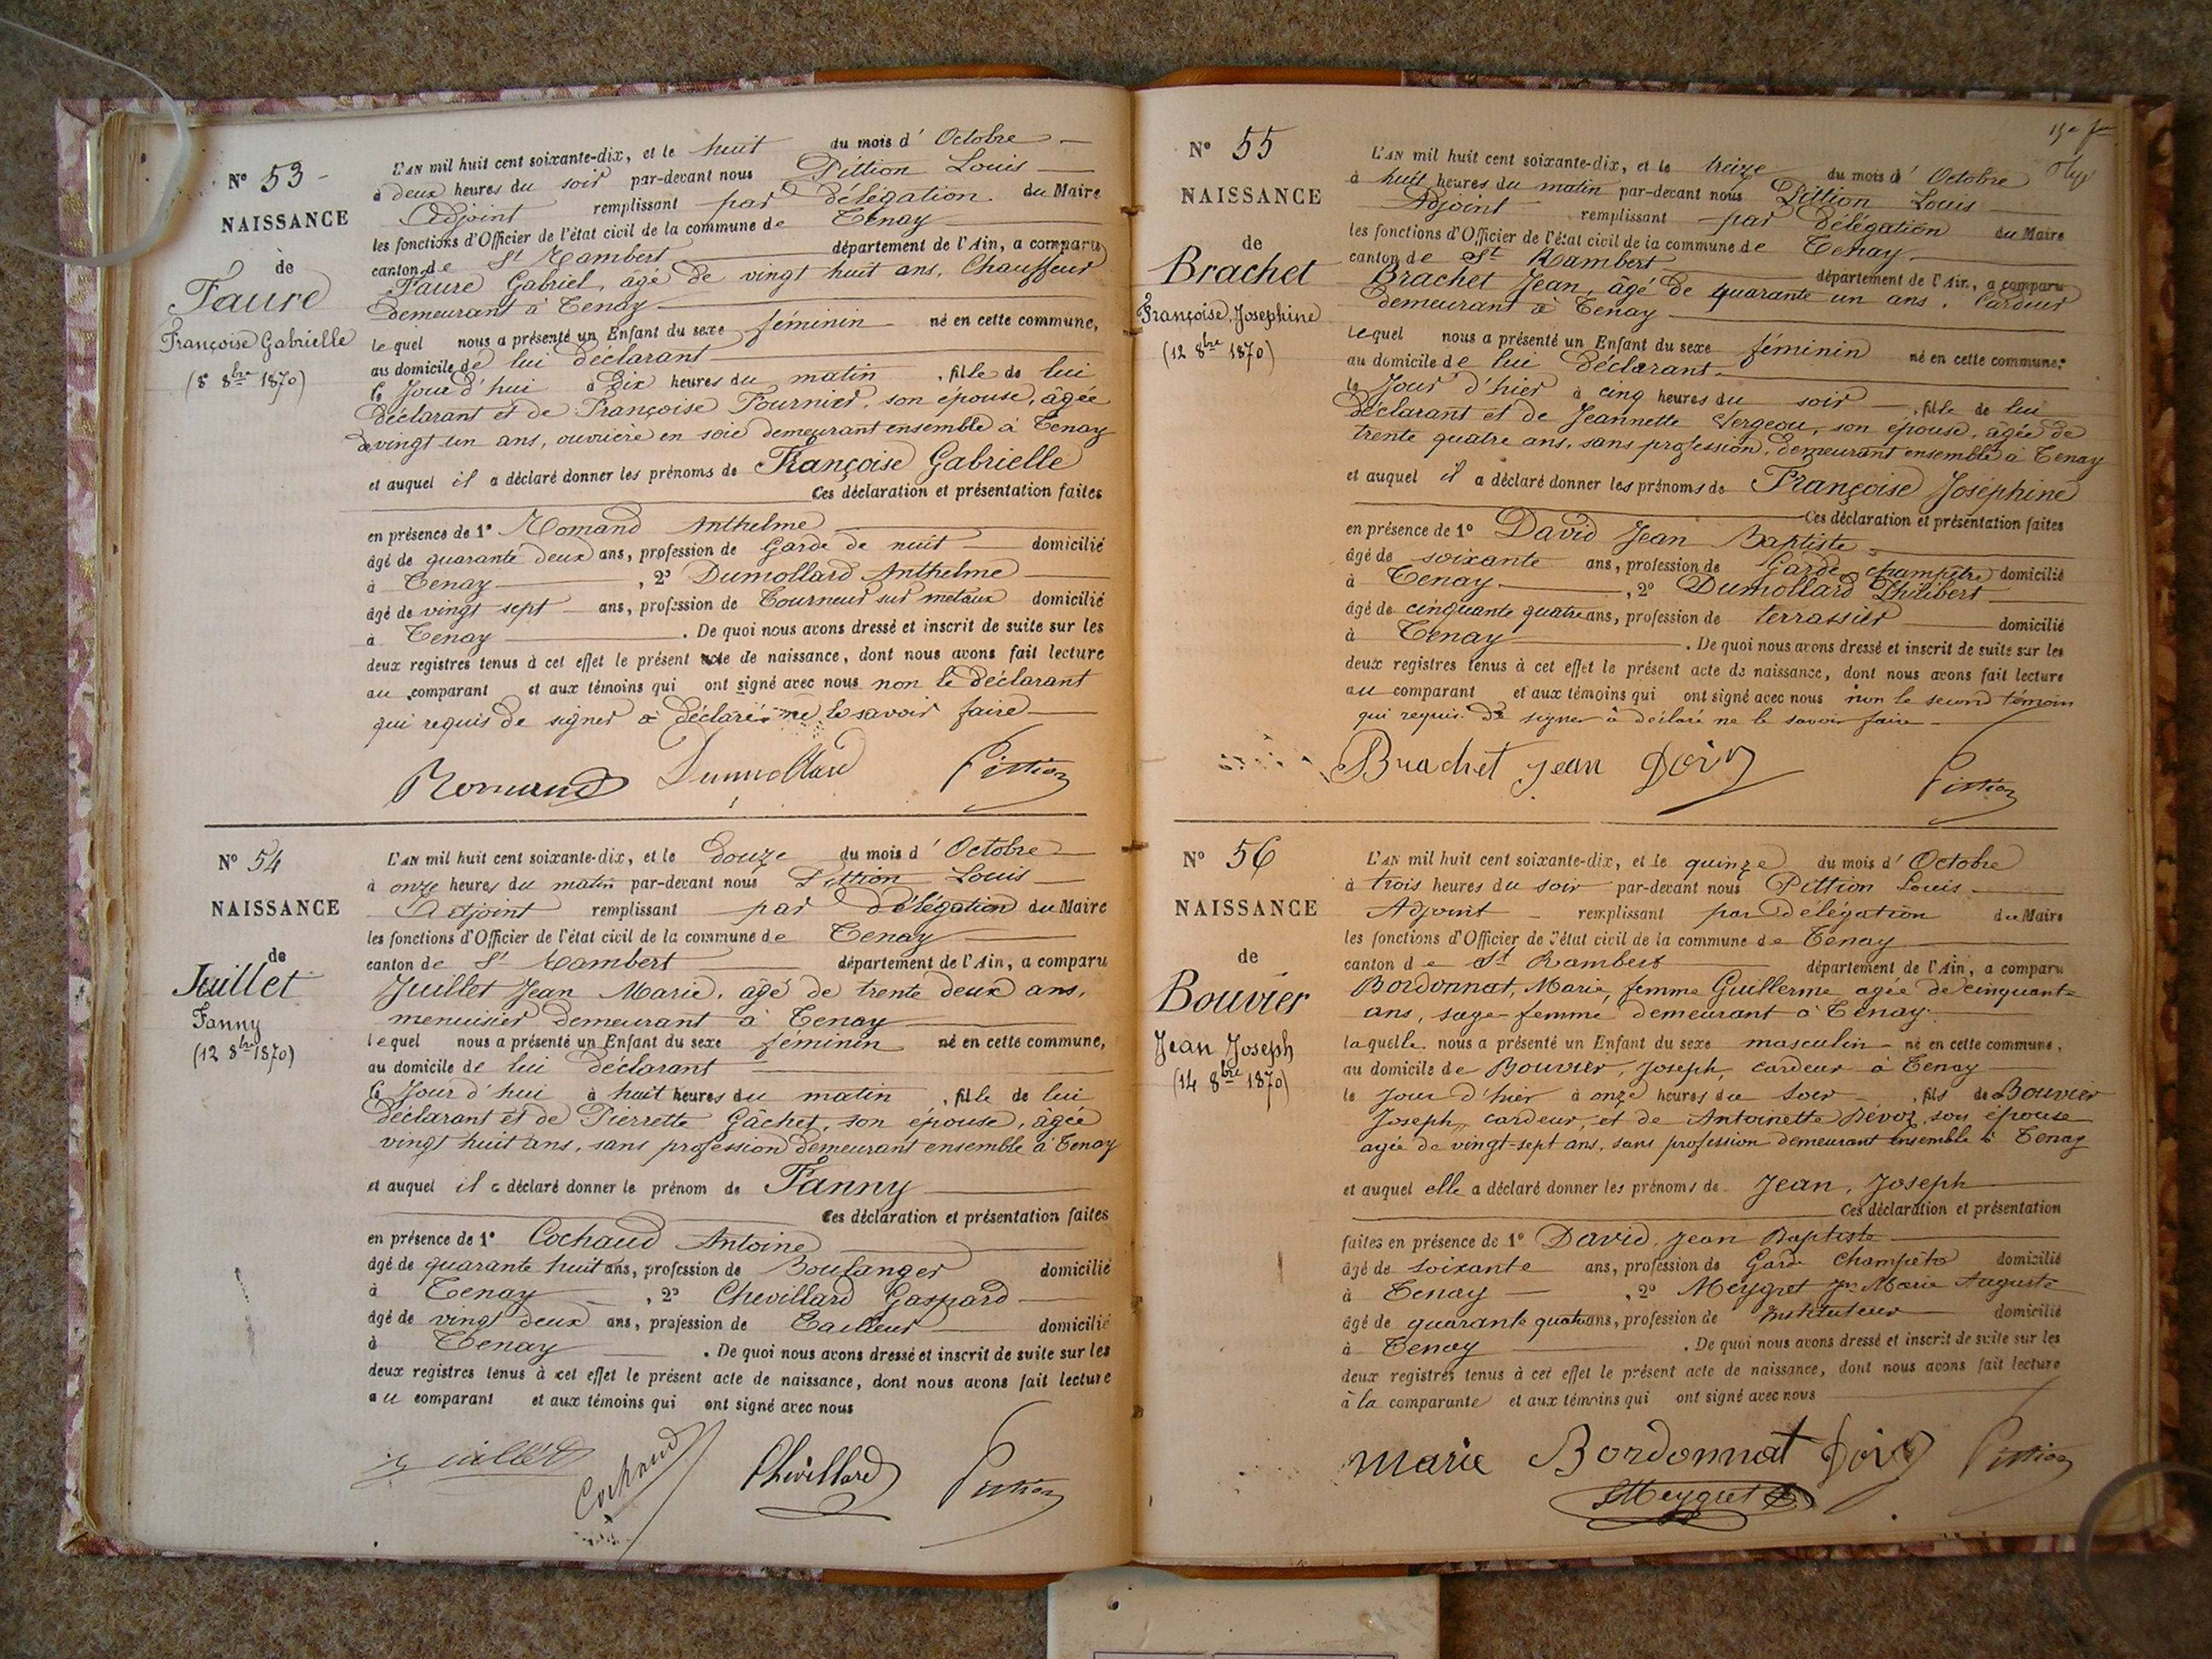 N° 53
NAISSANCE
de
Faure
Françoise Gabrielle
(8 8bre 1870)
L'AN mil huit cent soixante-dix, et le huit du mois d'Octobre
à deux heures du soir par-devant nous Pittion Louis
Adjoint remplissant par délégation du Maire
les fonctions d'Officier de l'état civil de la commune de Tenay
canton de St Rambert département de l'Ain, a comparu
Faure Gabriel, âgé de vingt huit ans, Chauffeur
demeurant à Tenay
lequel nous a présenté un Enfant du sexe féminin né en cette commune,
au domicile de lui déclarant
le Jour d'hui à dix heures du matin, fille de lui
déclarant et de Françoise Fournier, son épouse, âgée
de vingt un ans, ouvrière en soie demeurant ensemble à Tenay
et auquel il a déclaré donner les prénoms de Françoise Gabrielle
Ces déclaration et présentation faites
en présence de 1° Romand Anthelme
âgé de quarante deux ans, profession de Garde de nuit domicilié
à Tenay, 2° Dumollard Anthelme
âgé de vingt sept ans, profession de Tourneur sur métaux domicilié
à Tenay. De quoi nous avons dressé et inscrit de suite sur les
deux registres tenus à cet effet le présent acte de naissance, dont nous avons fait lecture
au comparant et aux témoins qui ont signé avec nous non le déclarant
qui requis de signer a déclaré ne le savoir faire
Romand Dumollard Pittion
N° 54
NAISSANCE
de
Juillet
Fanny
(12 8bre 1870)
L'AN mil huit cent soixante-dix, et le douze du mois d'Octobre
à onze heures du matin par-devant nous Pittion Louis
Adjoint remplissant par délégation du Maire
les fonctions d'Officier de l'état civil de la commune de Tenay
canton de St Rambert département de l'Ain, a comparu
Juillet Jean Marie, âgé de trente deux ans,
menuisier demeurant à Tenay
lequel nous a présenté un Enfant du sexe féminin né en cette commune,
au domicile de lui déclarant
le Jour d'hui à huit heures du matin, fille de lui
déclarant et de Pierrette Gâchet, son épouse, âgée
vingt huit ans, sans profession demeurant ensemble à Tenay
et auquel il a déclaré donner le prénom de Fanny
Ces déclaration et présentation faites
en présence de 1° Cochaud Antoine
âgé de quarante huit ans, profession de Boulanger domicilié
à Tenay, 2° Chevillard Gaspard
âgé de vingt deux ans, profession de Tailleur domicilié
à Tenay. De quoi nous avons dressé et inscrit de suite sur les
deux registres tenus à cet effet le présent acte de naissance, dont nous avons fait lecture
au comparant et aux témoins qui ont signé avec nous
Juillet Cochaud Chevillard Pittion
N° 55
NAISSANCE
de
Brachet
Françoise, Josephine
(12 8bre 1870)
L'AN mil huit cent soixante-dix, et le treize du mois d'Octobre
à huit heures du matin par-devant nous Pittion Louis
Adjoint remplissant par délégation du Maire
les fonctions d'Officier de l'état civil de la commune de Tenay
canton de St Rambert département de l'Ain, a comparu
Brachet Jean, âgé de quarante un ans, Cardeur
demeurant à Tenay
lequel nous a présenté un Enfant du sexe féminin né en cette commune,
au domicile de lui déclarant
le Jour d'hier à cinq heures du soir, fille de lui
déclarant et de Jeannette Sergeou, son épouse, âgée de
trente quatre ans, sans profession, demeurant ensemble à Tenay
et auquel il a déclaré donner les prénoms de Françoise Joséphine
Ces déclaration et présentation faites
en présence de 1° David Jean Baptiste
âgé de soixante ans, profession de Garde champêtre domicilié
à Tenay, 2° Dumollard Philibert
âgé de cinquante quatre ans, profession de terrassier domicilié
à Tenay. De quoi nous avons dressé et inscrit de suite sur les
deux registres tenus à cet effet le présent acte de naissance, dont nous avons fait lecture
au comparant et aux témoins qui ont signé avec nous non le second témoin
qui requis de signer a déclaré ne le savoir faire
Brachet Jean Pittion
N° 56
NAISSANCE
de
Bouvier
Jean Joseph
(14 8bre 1870)
L'AN mil huit cent soixante-dix, et le quinze du mois d'Octobre
à trois heures du soir par-devant nous Pittion Louis
Adjoint remplissant par délégation du Maire
les fonctions d'Officier de l'état civil de la commune de Tenay
canton de St Rambert département de l'Ain, a comparu
Bordonnat, Marie, femme Guillerme agée de cinquante
ans, sage-femme demeurant à Tenay
laquelle nous a présenté un Enfant du sexe masculin né en cette commune,
au domicile de Bouvier, Joseph, cardeur à Tenay
le Jour d'hier à onze heures du soir, fils de Bouvier
Joseph, cardeur, et de Antoinette Bévoz, son épouse
agée de vingt-sept ans, sans profession demeurant ensemble à Tenay
et auquel elle a déclaré donner les prénoms de Jean, Joseph
Ces déclaration et présentation
faites en présence de 1° David, Jean Baptiste
âgé de soixante ans, profession de Garde Champêtre domicilié
à Tenay, 2° Meygret Jn Marie Auguste
âgé de quarante quatre ans, profession de instituteur domicilié
à Tenay. De quoi nous avons dressé et inscrit de suite sur les
deux registres tenus à cet effet le présent acte de naissance, dont nous avons fait lecture
à la comparante et aux témoins qui ont signé avec nous
Marie Bordonnat Pittion
Meygret